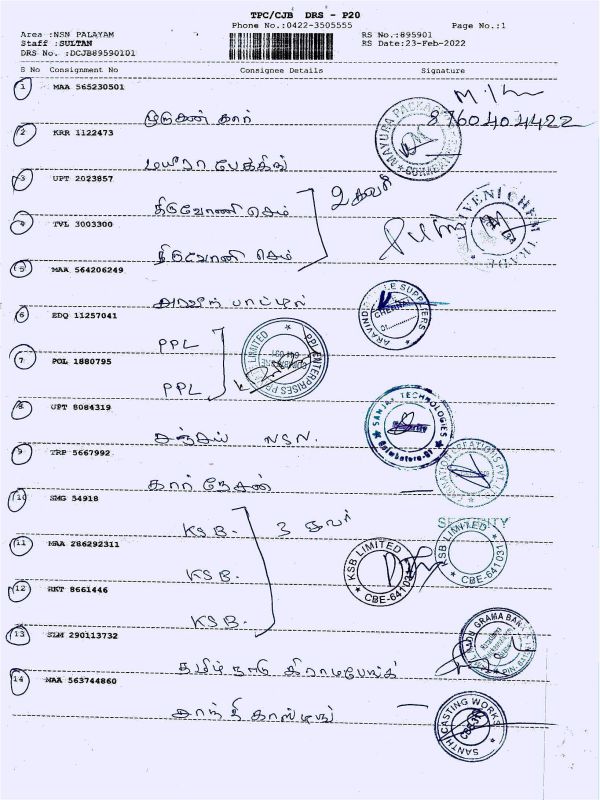 TPC/CJB DRS - P20
Phone No.:0422-3505555 Page No.:1
Area :NSN PALAYAM RS No.:895901
Staff :SULTAN RS Date:23-Feb-2022
DRS No. :DCJB89590101
S No Consignment No Consignee Details Signature
1 MAA 565230501
முருகன் கார் 8760404422
2 KRR 1122473
MAYURA PACKAG
மயூரா பேக்கிங்
3 UPT 2023857
திருவேணி கெம் 2 கவர்
4 TVL 3003300
திருவேணி கெம்
5 MAA 564206249
அரவிந்
6 EDQ 11257041
PPL
PPL ENTERPRISES LIMITED
7 POL 1880795
PPL
8 UPT 8084319
SANJAY TECHNOLOGIES
Coimbatore
சஞ்சய் NSN.
9 TRP 5667992
கார்
10 SMG 54918
KSB. 3 கவர் SECURITY
11 MAA 286292311
KSB. KSB LIMITED CBE-641031 KSB LIMITED CBE-641031
12 RKT 8661446
KSB.
13 SLM 290113732
தமிழ் நாடு கிராம பேங்க் GRAMA BANK
14 MAA 563744860
சாந்தி காஸ்டிங் SANTHI CASTING WORKS